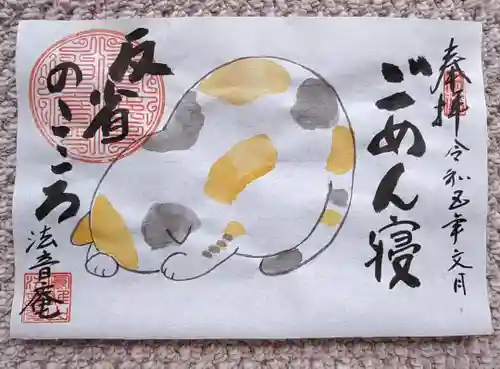 奉拝
令和五年文月
ごめん寝
反省
のこころ
法音庵